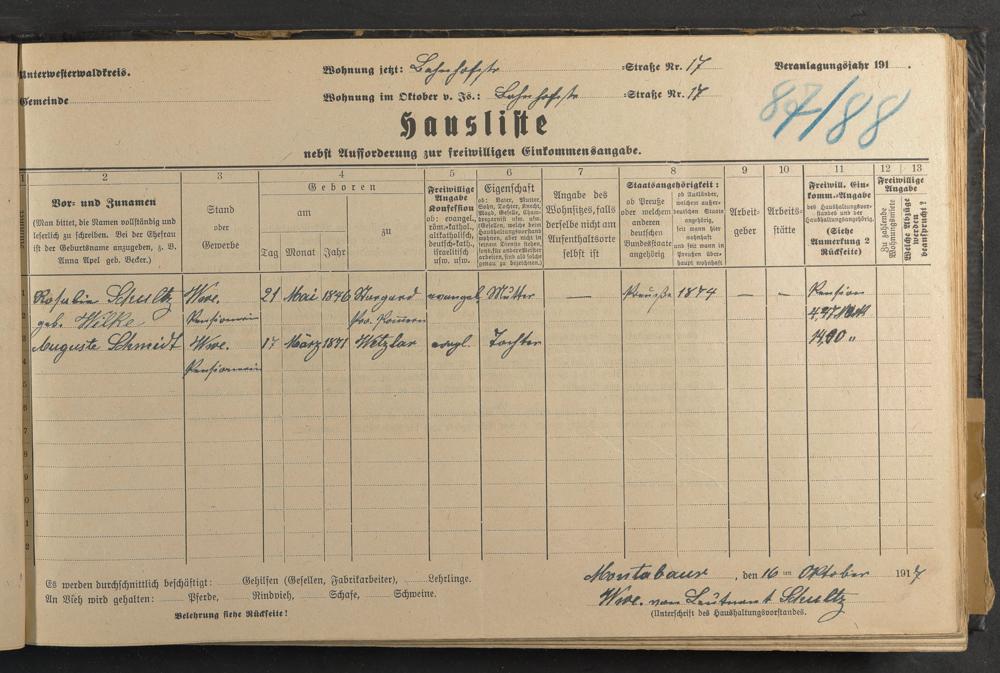 Unterwesterwaldkreis.
Wohnung jetzt: Bahnhofstr Straße Nr. 17
Veranlagungsjahr 191 .
Gemeinde
Wohnung im Oktober v. Js.: Bahnhofstr Straße Nr. 17
87/88
Hausliste
nebst Aufforderung zur freiwilligen Einkommensangabe.
1 2 3 4 5 6 7 8 9 10 11 12 13
Vor- und Zunamen
(Man bittet, die Namen vollständig und
leserlich zu schreiben. Bei der Ehefrau
ist der Geburtsname anzugeben, z. B.
Anna Apel geb. Becker.)
Stand
oder
Gewerbe
Geboren
am
zu
Tag Monat Jahr
Freiwillige
Angabe
Konfession
ob: evangel.,
röm.-kathol.,
altkatholisch,
deutsch-kath.,
israelitisch
usw. usw.
Eigenschaft
ob: Vater, Mutter,
Sohn, Tochter, Knecht,
Magd, Geselle, Cham-
bregarnist usw. usw.
(Gesellen, welche beim
Haushaltungsvorstand
wohnen, aber nicht in
seinem Dienste stehen,
sond. für andere Meister
arbeiten, sind als solche
genau zu bezeichnen.)
Angabe des
Wohnsitzes, falls
derselbe nicht am
Aufenthaltsorte
selbst ist
Staatsangehörigkeit:
ob Preuße
oder welchem
anderen
deutschen
Bundesstaate
angehörig
ob Ausländer,
welchem außer-
deutschen Staate
angehörig,
seit wann hier
wohnhaft
und seit wann in
Preußen über-
haupt wohnhaft
Arbeit-
geber
Arbeits-
stätte
Freiwill. Ein-
komm.-Angabe
des Haushaltungsvor-
standes und der
Haushaltungsangehörig.
(Siehe
Anmerkung 2
Rückseite)
Freiwillige
Angabe
Zu zahlende
Wohnungsmiete
Welche Abzüge
werden
beansprucht?
Rosalie Schultz Wwe. 21 Mai 1846 Stargard evangel. Mutter — Preuße 1874 — — Pension
geb. Wilke Pensionärin Pro. Pommern
Auguste Schmidt Wwe. 17 März 1871 Wetzlar evgl. Tochter 1400 „
Pensionärin
Es werden durchschnittlich beschäftigt: Gehilfen (Gesellen, Fabrikarbeiter), Lehrlinge.
An Vieh wird gehalten: Pferde, Rindvieh, Schafe, Schweine.
Belehrung siehe Rückseite!
Montabaur, den 16ten Oktober 1917
Wwe. von Leutnant Schultz
(Unterschrift des Haushaltungsvorstandes.